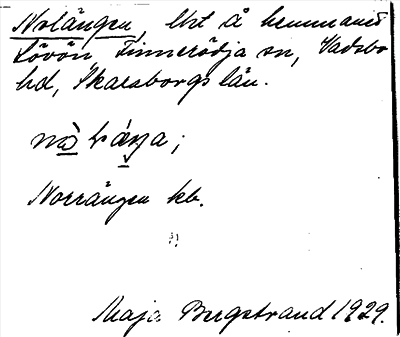 Norängen, lht å hemmanet
Lövön, Finnerödja sn, Vadsbo
hd, Skaraborgs län.
Norrängen kb.
Maja Bergstrand 1929.